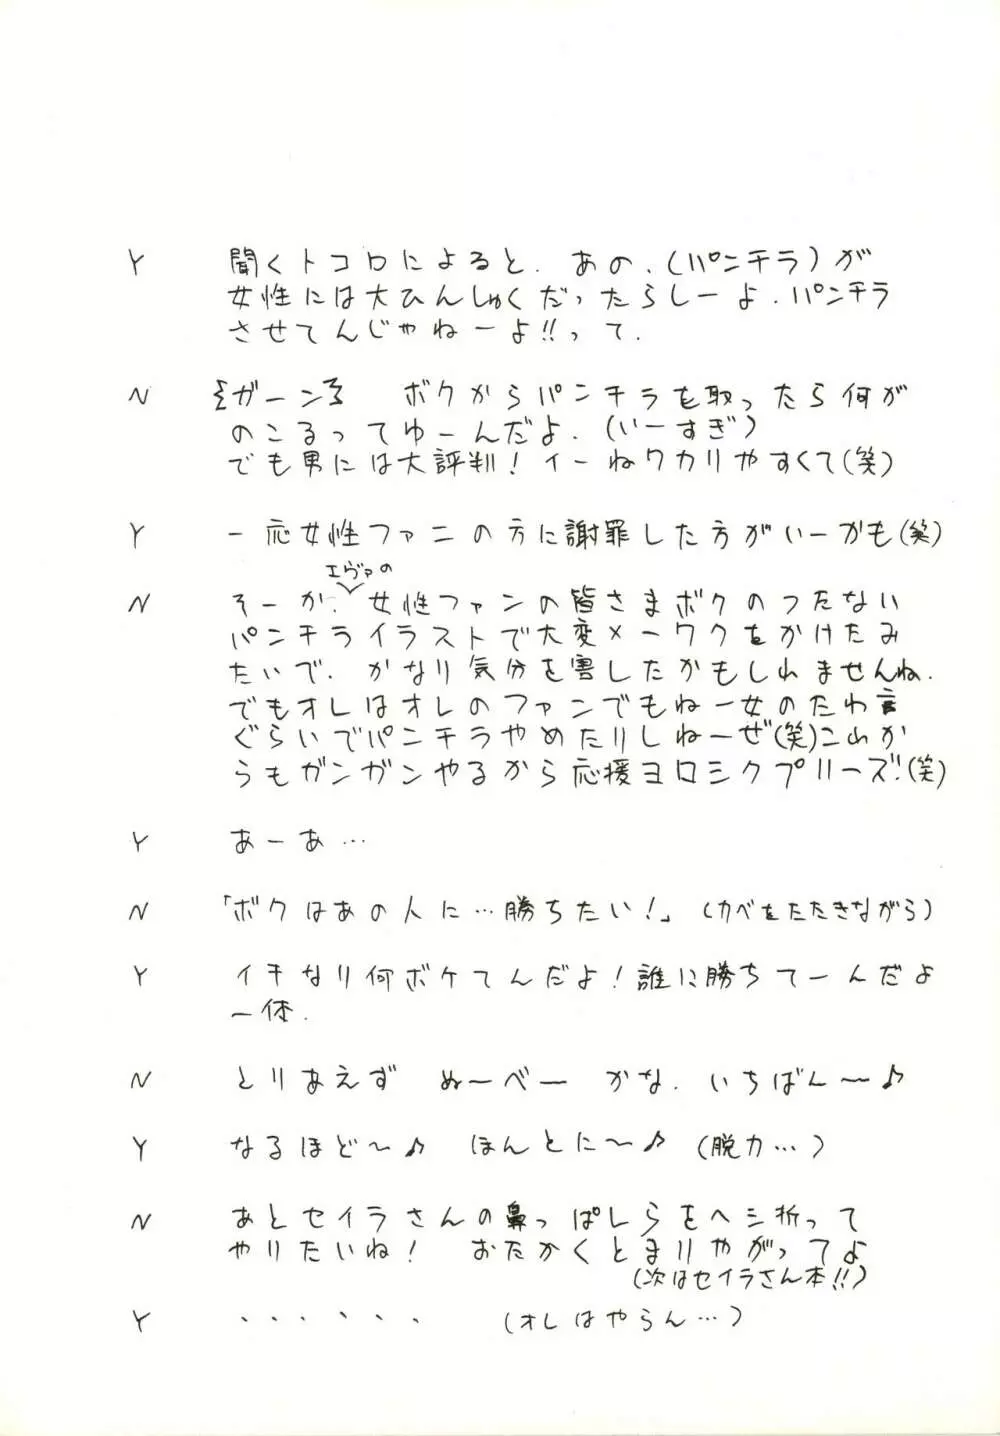 Y 聞くトコロによると. あの.(パンチラ)が
女性には大ひんしゅくだったらしーよ. パンチラ
させてんじゃねーよ!!って.
N ガーン ボクからパンチラを取ったら何が
のこるってゆーんだよ. (いーすぎ)
でも男には大評判! イーねワカリやすくて(笑)
Y 一応女性ファンの方に謝罪した方がいーかも(笑)
エヴァの
N そーか. 女性ファンの皆さまボクのつたない
パンチライラストで大変メーワクをかけたみ
たいで. かなり気分を害したかもしれませんね.
でもオレはオレのファンでもねー女のたわ言
ぐらいでパンチラやめたりしねーぜ(笑)これか
らもガンガンやるから応援ヨロシクプリーズ!(笑)
Y あーあ…
N 「ボクはあの人に…勝ちたい!」(カベをたたきながら)
Y イキなり何ボケてんだよ! 誰に勝ちてーんだよ
一体.
N とりあえず ぬーべー かな. いちばん〜♪
Y なるほど〜♪ ほんとに〜♪ (脱力…)
N あとセイラさんの鼻っぱしらをヘシ折って
やりたいね! おたかくとまりやがってよ
(次はセイラさん本!!)
Y ・・・・・・ (オレはやらん…)